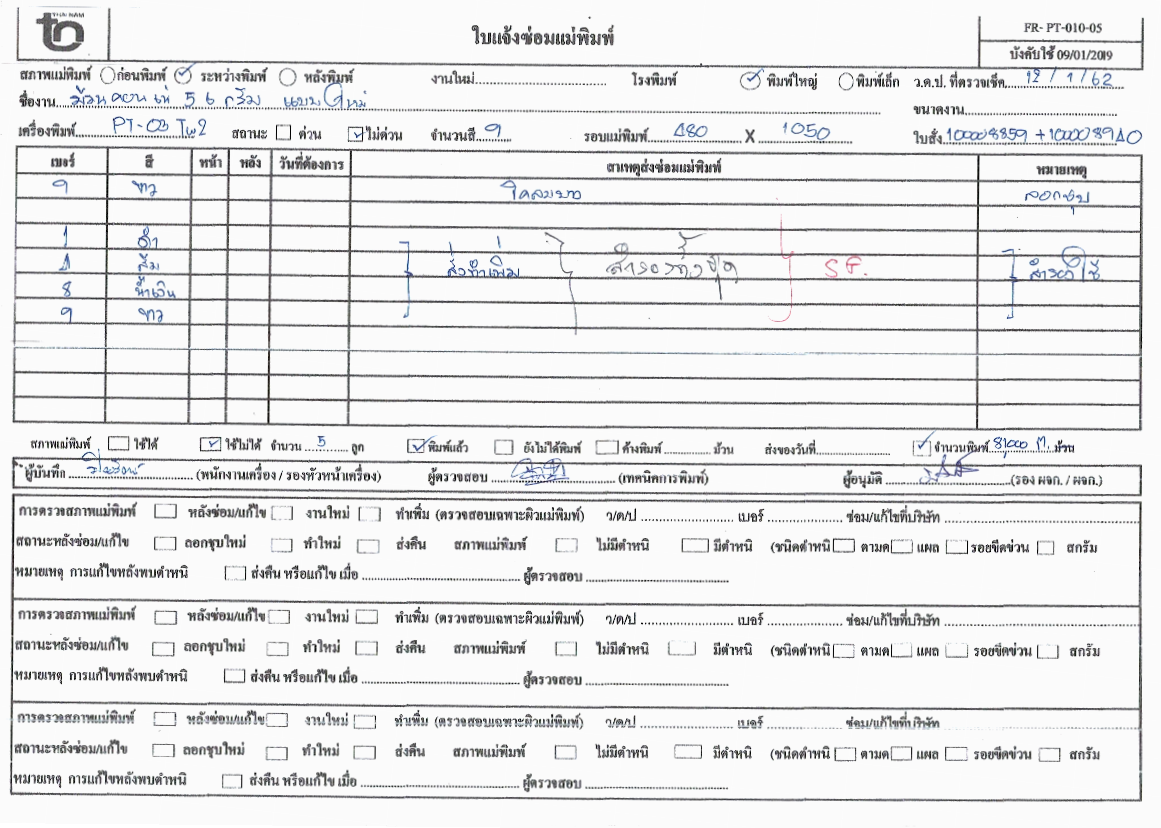 THAI NAM
ใบแจ้งซ่อมแม่พิมพ์
FR- PT-010-05
บังคับใช้ 09/01/2019
สภาพแม่พิมพ์ ก่อนพิมพ์ ระหว่างพิมพ์ หลังพิมพ์ งานใหม่ โรงพิมพ์ พิมพ์ใหญ่ พิมพ์เล็ก ว.ด.ป. ที่ตรวจเช็ค 12 / 1 / 62
ชื่องาน 56 กรัม แบบใหม่ ขนาดงาน
เครื่องพิมพ์ PT-03 สถานะ ด่วน ไม่ด่วน จำนวนสี 9 รอบแม่พิมพ์ 480 X 1050 ใบสั่ง 100008859 + 100008940
เบอร์ สี หน้า หลัง วันที่ต้องการ สาเหตุส่งซ่อมแม่พิมพ์ หมายเหตุ
9 ขาว ลอกชุบ
1 ดำ
4 ส้ม สั่งทำเพิ่ม สำรองทั้งชุด สำรองใช้
8 น้ำเงิน
9 ขาว
สภาพแม่พิมพ์ ใช้ได้ ใช้ไม่ได้ จำนวน 5 ลูก พิมพ์แล้ว ยังไม่ได้พิมพ์ ค้างพิมพ์ ม้วน ส่งของวันที่ จำนวนพิมพ์ 81,000 M. ม้วน
ผู้บันทึก (พนักงานเครื่อง / รองหัวหน้าเครื่อง) ผู้ตรวจสอบ (เทคนิคการพิมพ์) ผู้อนุมัติ (รอง ผจก. / ผจก.)
การตรวจสภาพแม่พิมพ์ หลังซ่อม/แก้ไข งานใหม่ ทำเพิ่ม (ตรวจสอบเฉพาะผิวแม่พิมพ์) ว/ด/ป เบอร์ ซ่อม/แก้ไขที่บริษัท
สถานะหลังซ่อม/แก้ไข ลอกชุบใหม่ ทำใหม่ ส่งคืน สภาพแม่พิมพ์ ไม่มีตำหนิ มีตำหนิ (ชนิดตำหนิ ตามด แผล รอยขีดข่วน สกรัม
หมายเหตุ การแก้ไขหลังพบตำหนิ ส่งคืน หรือแก้ไข เมื่อ ผู้ตรวจสอบ
การตรวจสภาพแม่พิมพ์ หลังซ่อม/แก้ไข งานใหม่ ทำเพิ่ม (ตรวจสอบเฉพาะผิวแม่พิมพ์) ว/ด/ป เบอร์ ซ่อม/แก้ไขที่บริษัท
สถานะหลังซ่อม/แก้ไข ลอกชุบใหม่ ทำใหม่ ส่งคืน สภาพแม่พิมพ์ ไม่มีตำหนิ มีตำหนิ (ชนิดตำหนิ ตามด แผล รอยขีดข่วน สกรัม
หมายเหตุ การแก้ไขหลังพบตำหนิ ส่งคืน หรือแก้ไข เมื่อ ผู้ตรวจสอบ
การตรวจสภาพแม่พิมพ์ หลังซ่อม/แก้ไข งานใหม่ ทำเพิ่ม (ตรวจสอบเฉพาะผิวแม่พิมพ์) ว/ด/ป เบอร์ ซ่อม/แก้ไขที่บริษัท
สถานะหลังซ่อม/แก้ไข ลอกชุบใหม่ ทำใหม่ ส่งคืน สภาพแม่พิมพ์ ไม่มีตำหนิ มีตำหนิ (ชนิดตำหนิ ตามด แผล รอยขีดข่วน สกรัม
หมายเหตุ การแก้ไขหลังพบตำหนิ ส่งคืน หรือแก้ไข เมื่อ ผู้ตรวจสอบ